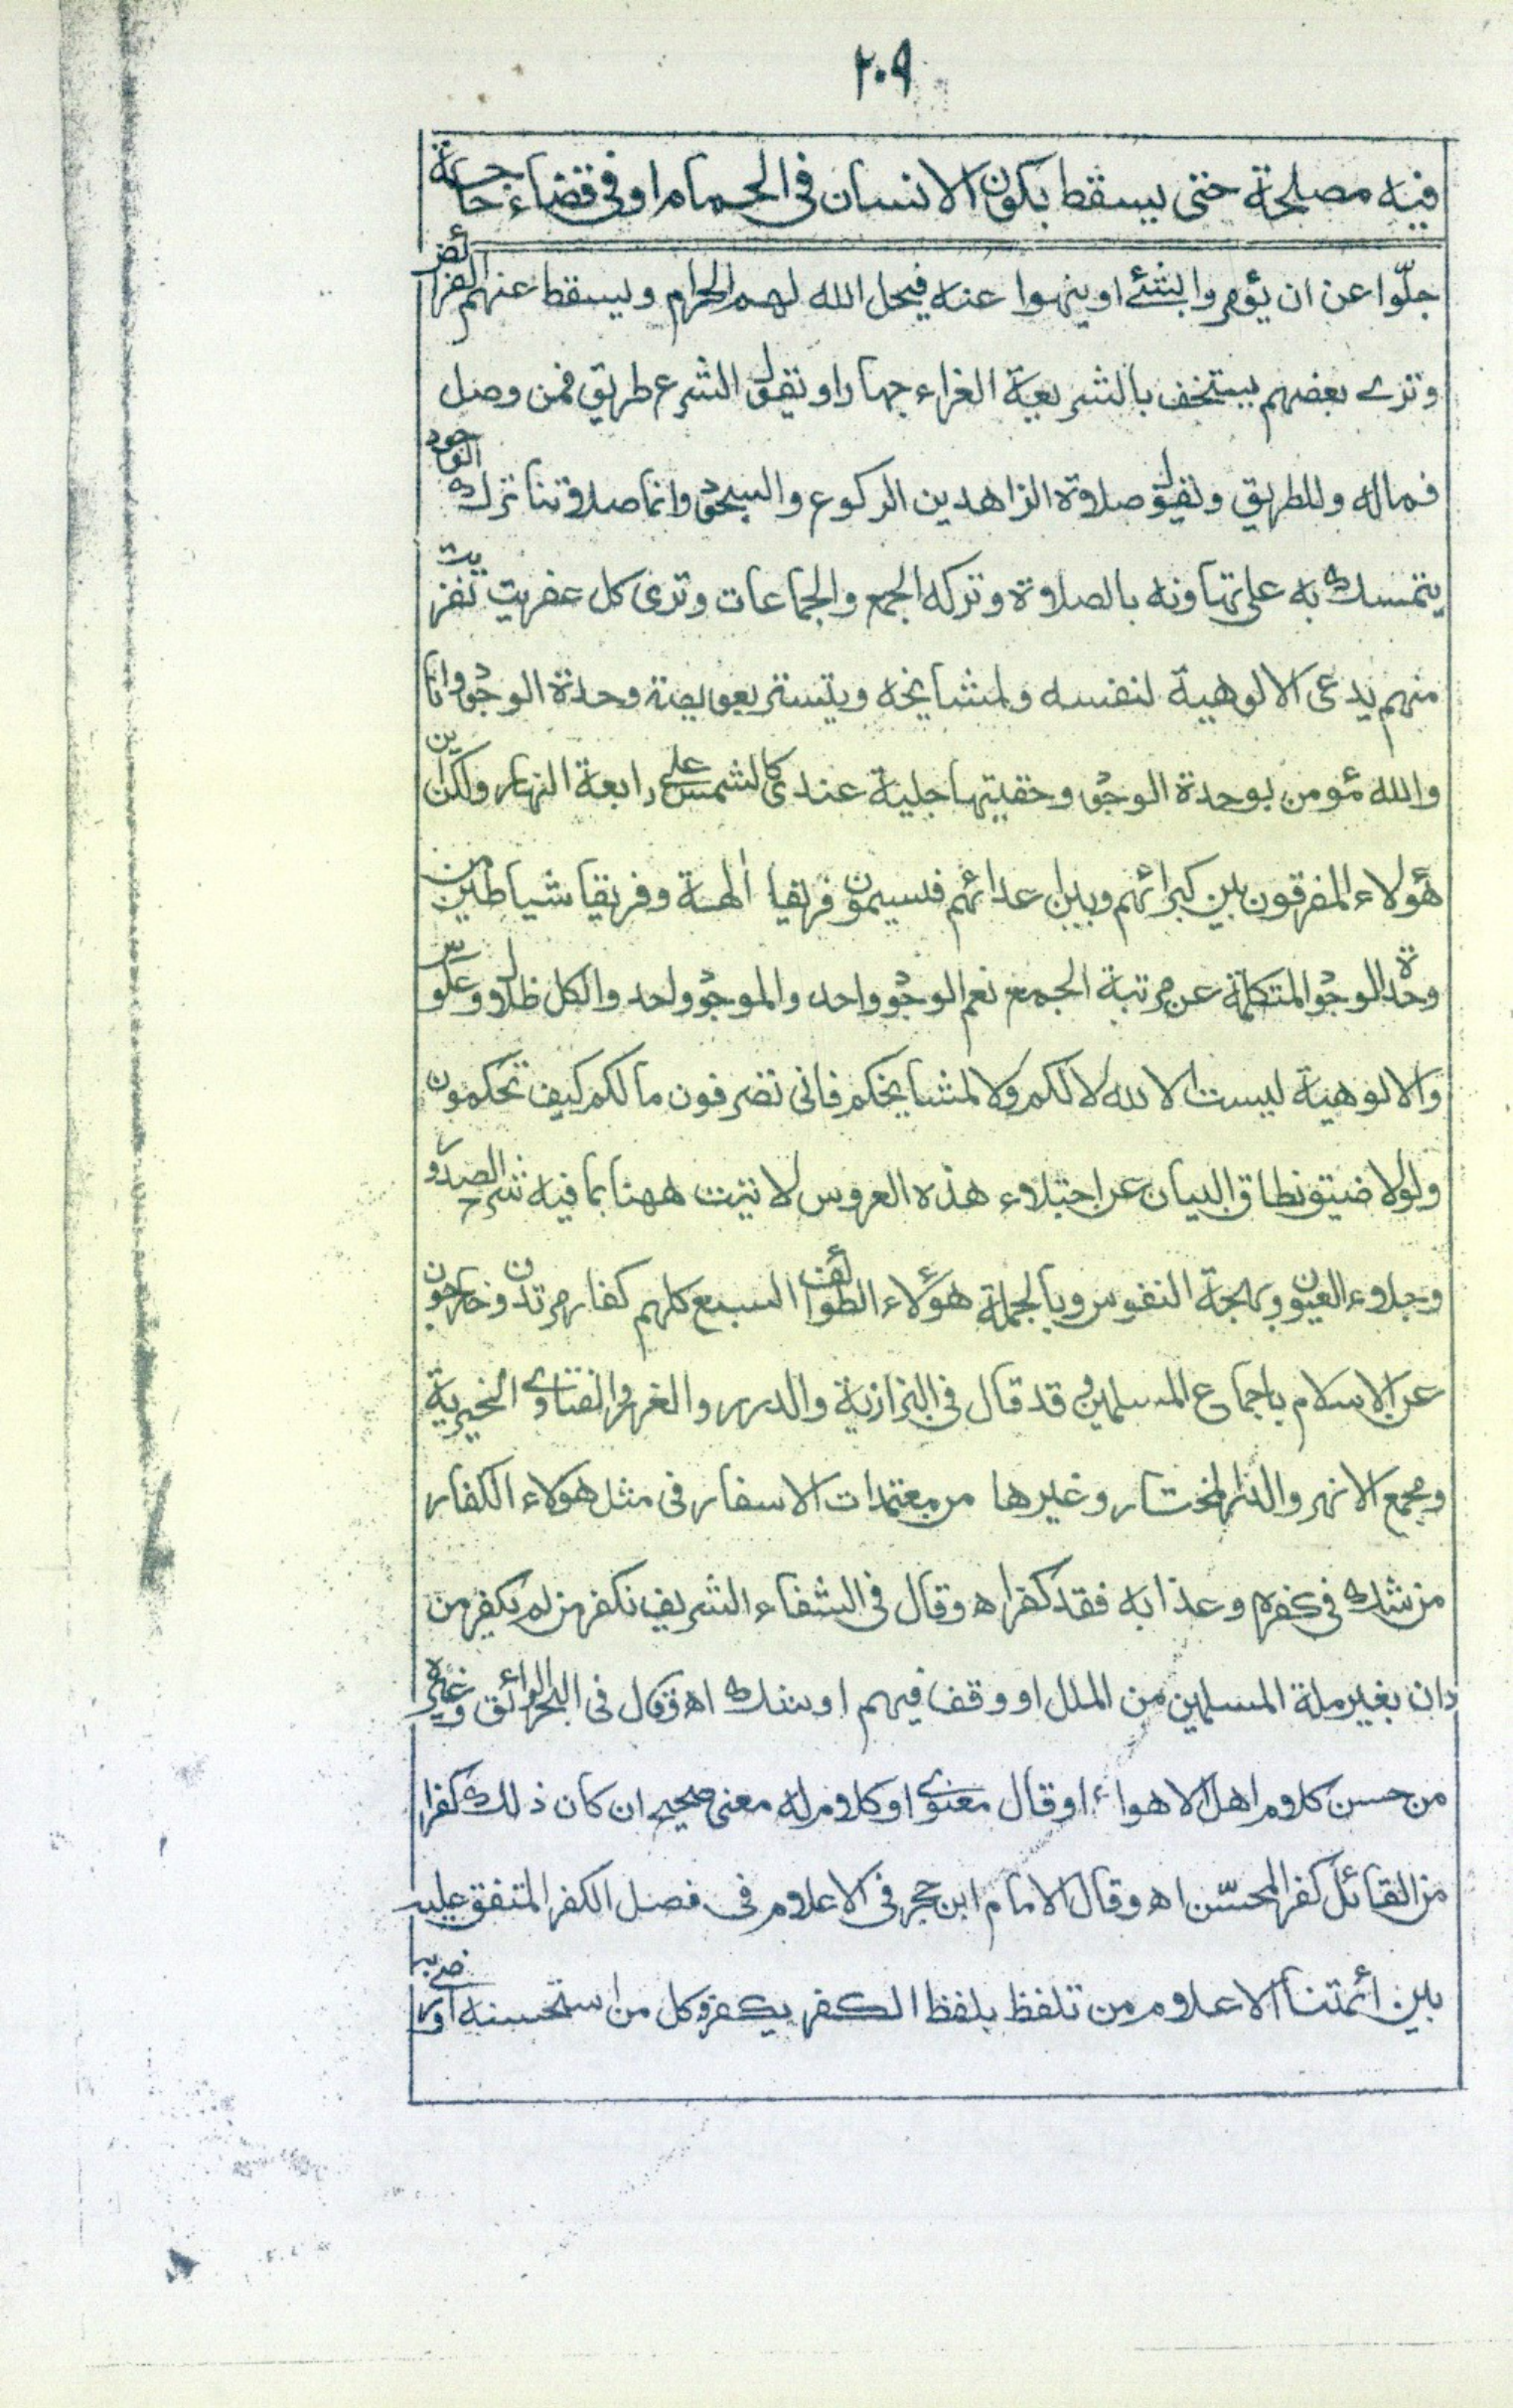 ٢٠٩
فيه مصلحة حتى يسقط بكون الانسان فى الحمام او فى قضاء حاجة
جلّوا عن ان يؤمروا بشئ او ينهوا عنه فيحل الله لهم الحرام ويسقط عنهم الفرائض
وترے بعضهم يستخف بالشريعة الغراء جهارا ويقول الشرع طريق فمن وصل
فماله وللطريق ويقول صلاوة الزاهدين الركوع والسجود وانما صلاوتنا ترك الوجود
يتمسك به على تهاونه بالصلاوة وتركه الجمع والجماعات وترى كل عفريت نفريت
منهم يدعى الالوهية لنفسه ولمشايخه ويتستر بعويصة وحدة الوجود وانا
والله مؤمن بوحدة الوجود وحقيتها جلية عندى كالشمس على رابعة النهار ولكن اين
هؤلاء المفرقون بين كبرائهم وبين اعدائهم فيسمون فريقا ألهة وفريقا شياطين من
وحدة الوجود المتكلمة عن مرتبة الجمع نعم الوجود واحد والموجود واحد والكل ظلال وعكوس
والالوهية ليست الا لله لا لكم ولا لمشايخكم فانى تصرفون مالكم كيف تحكمون
ولولا ضيق نطاق البيان عن اجتلاوء هذه العروس لاتيت ههنا بما فيه شرح الصدور
وجلاوء العيون وبهجة النفوس وبالجملة هؤلاء الطوائف السبع كلهم كفار مرتدون خارجون
عن الاسلام باجماع المسلمين وقد قال فى البزازية والدرر والغرر والفتاوے الخيرية
ومجمع الانهر والدر المختار وغيرها من معتمدات الاسفار فى مثل هؤلاء الكفار
من شك فى كفره وعذابه فقد كفر اه وقال فى الشفاء الشريف نكفر من لم يكفر من
دان بغير ملة المسلمين من الملل او وقف فيهم او شك اه وقال فى البحر الرائق وغيره
من حسن كلاوم اهل الاهواء او قال معنوى او كلاوم له معنى صحيح ان كان ذلك كفرا
من القائل كفر المحسّن اه وقال الامام ابن حجر فى الاعلاوم فى فصل الكفر المتفق عليه
بين أئمتنا الاعلاوم من تلفظ بلفظ الكفر يكفر وكل من استحسنه او رضى به